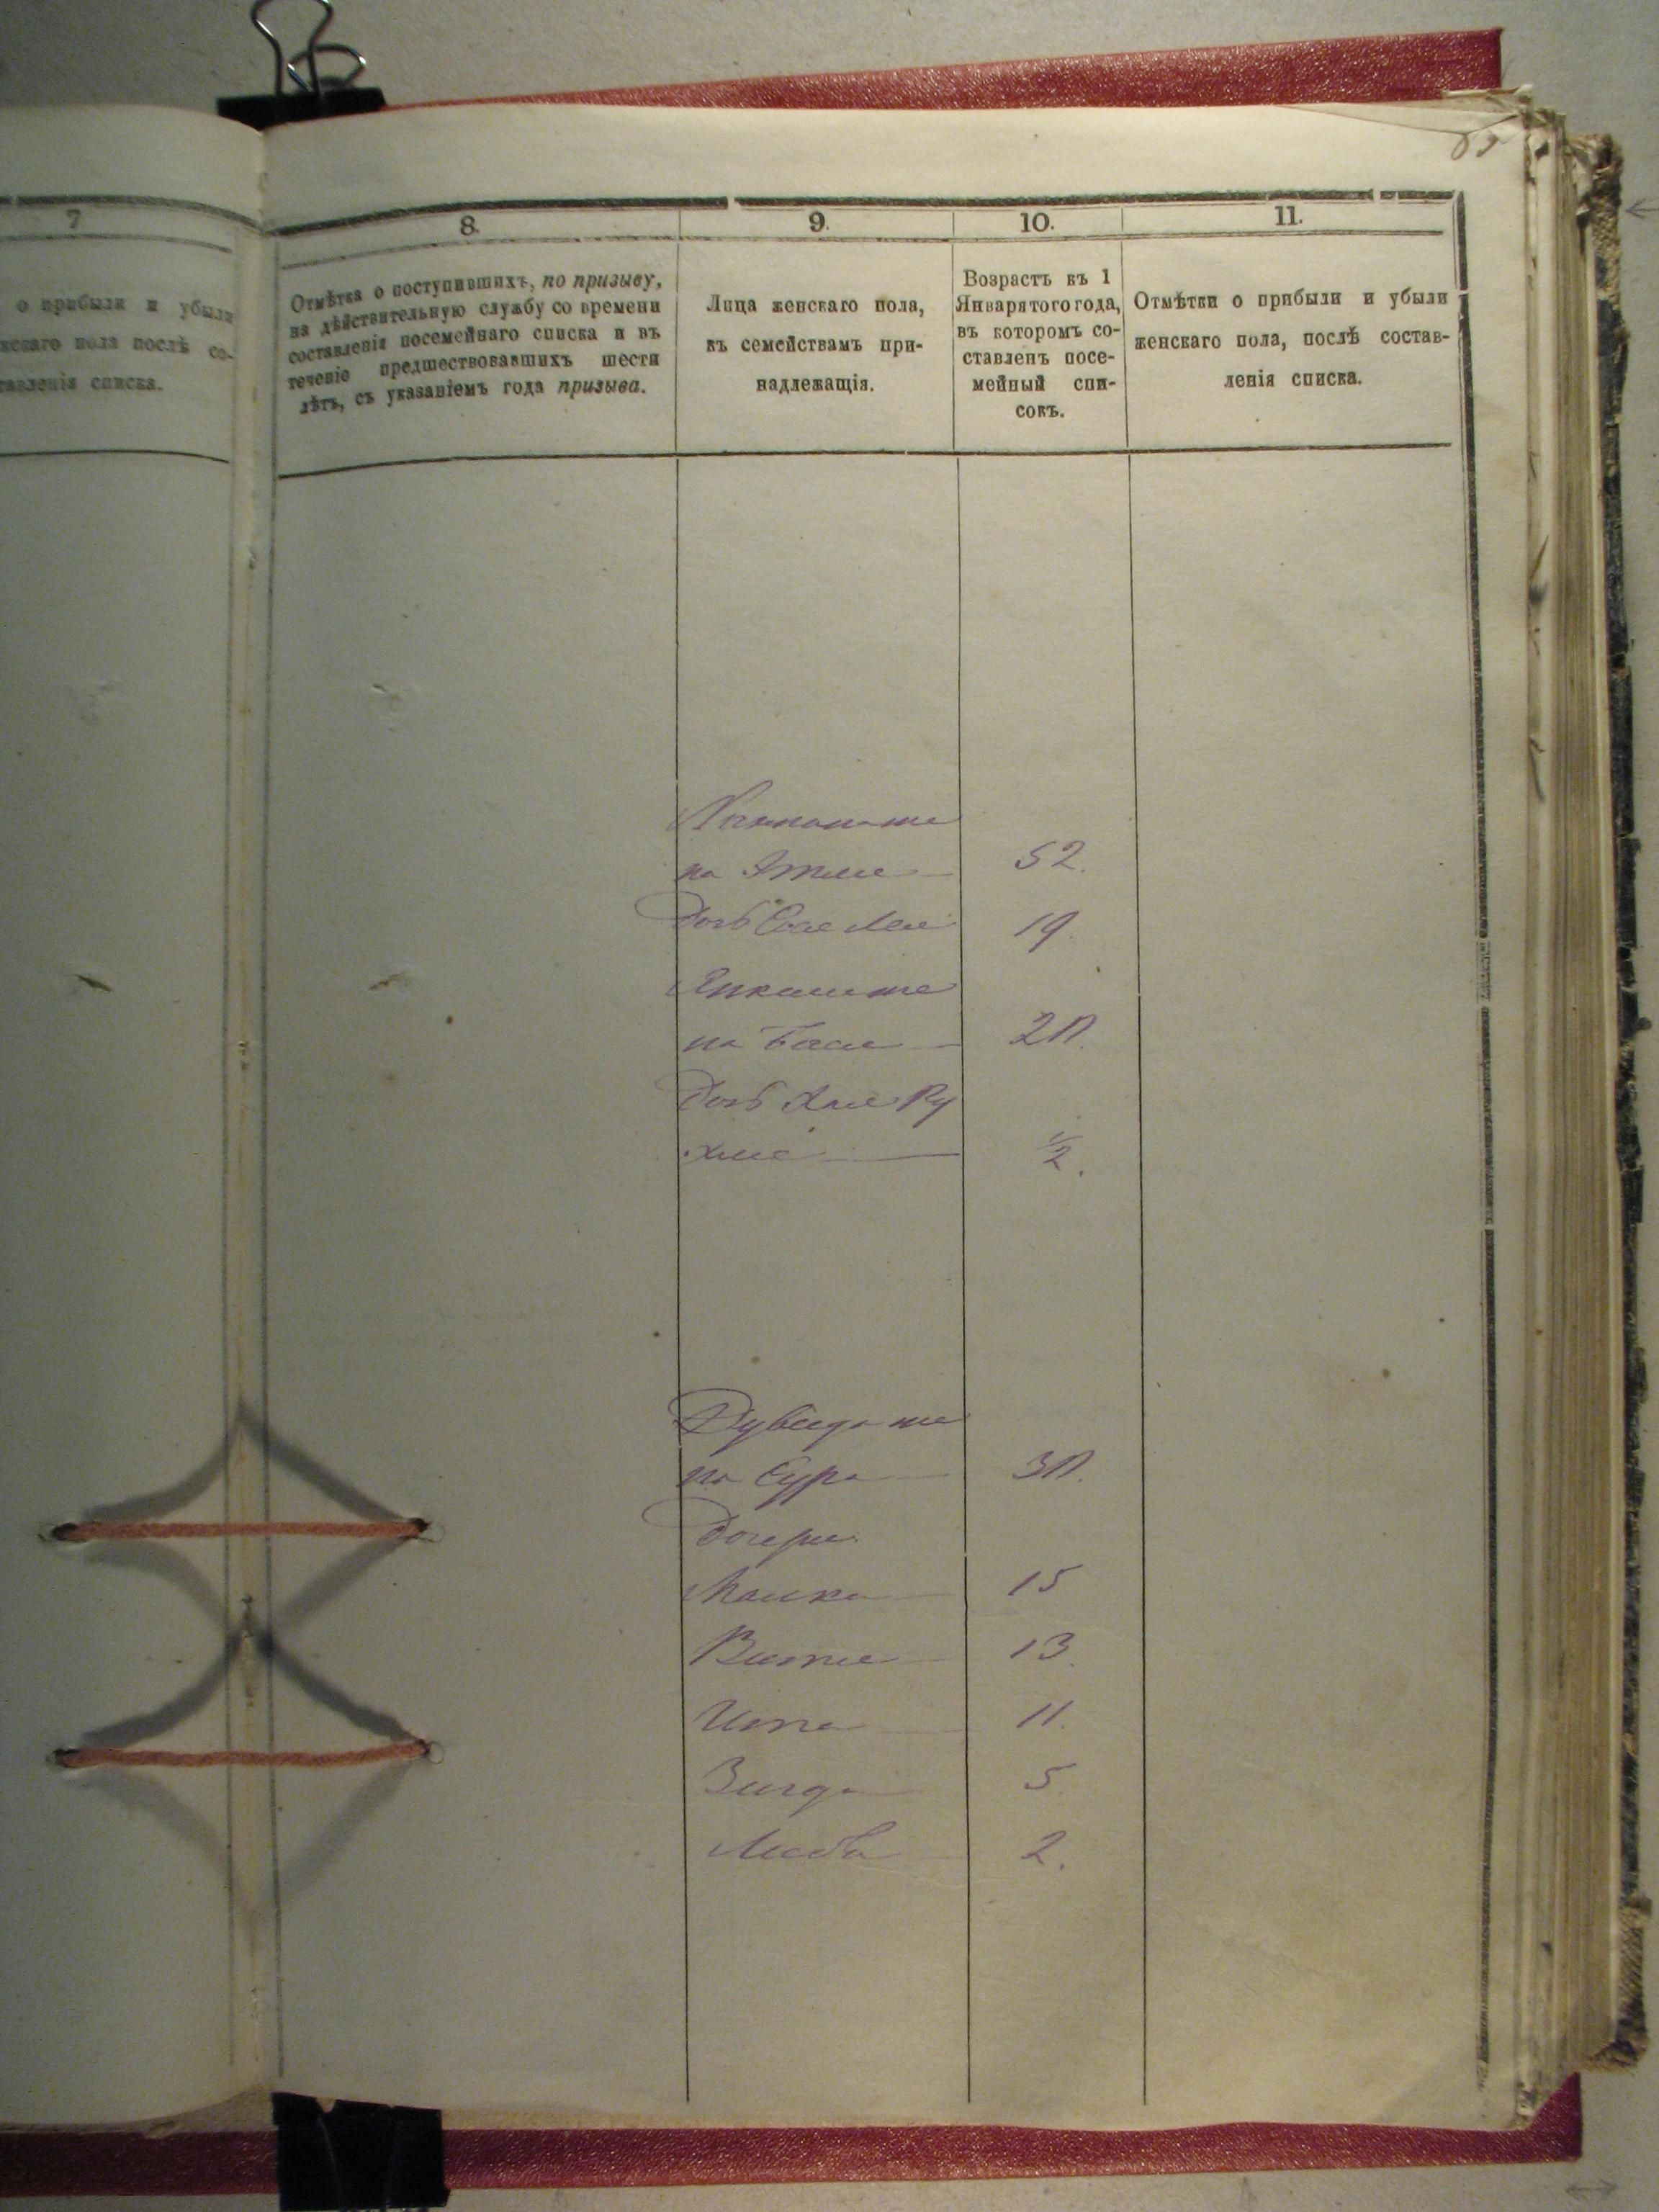 7
о прибыли и убыли
жескаго пола послѣ со-
тавленія списка.
8.
Отмѣтка о поступившихъ, по призыву,
на дѣйствительную службу со времени
составленія посемейнаго списка и въ
теченіе предшествовавшихъ шести
лѣтъ, съ указаніемъ года призыва.
9.
Лица женскаго пола,
къ семействамъ при-
надлежащія.
10.
Возрастъ къ 1
Января того года,
въ которомъ со-
ставленъ посе-
мейный спи-
сокъ.
11.
Отмѣтки о прибыли и убыли
женскаго пола, послѣ состав-
ленія списка.
же
на 52.
Дочь 19.
же
на Бася
Дочь Хая Ру
хля 1/2.
же
на Сура
Дочери
Малка 15
Витя 13.
Ита 11.
Зигда 5.
Либа 2.